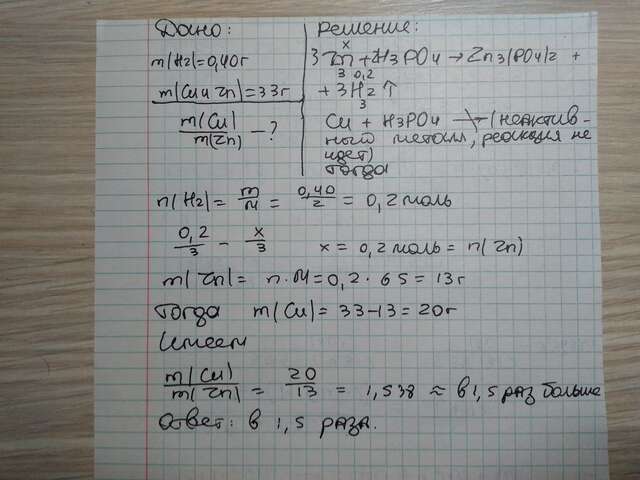 Дано:
m(H2)=0,40г
m(Cu и Zn)=33г
m(Cu)
m(Zn) - ?
Решение:
x
3Zn+2H3PO4 → Zn3(PO4)2 +
3 0,2
+3H2↑
3
Cu + H3PO4 -/→ (неактив-
ного металл, реакция не
идет)
Тогда
n(H2)= m/M = 0,40/2 = 0,2 моль
0,2/3 - x/3 x = 0,2 моль = n(Zn)
m(Zn)= n·M=0,2·65=13г
Тогда m(Cu)=33-13=20г
Имеем
m(Cu)/m(Zn) = 20/13 = 1,538 ≈ в 1,5 раз больше
Ответ: в 1,5 раза.